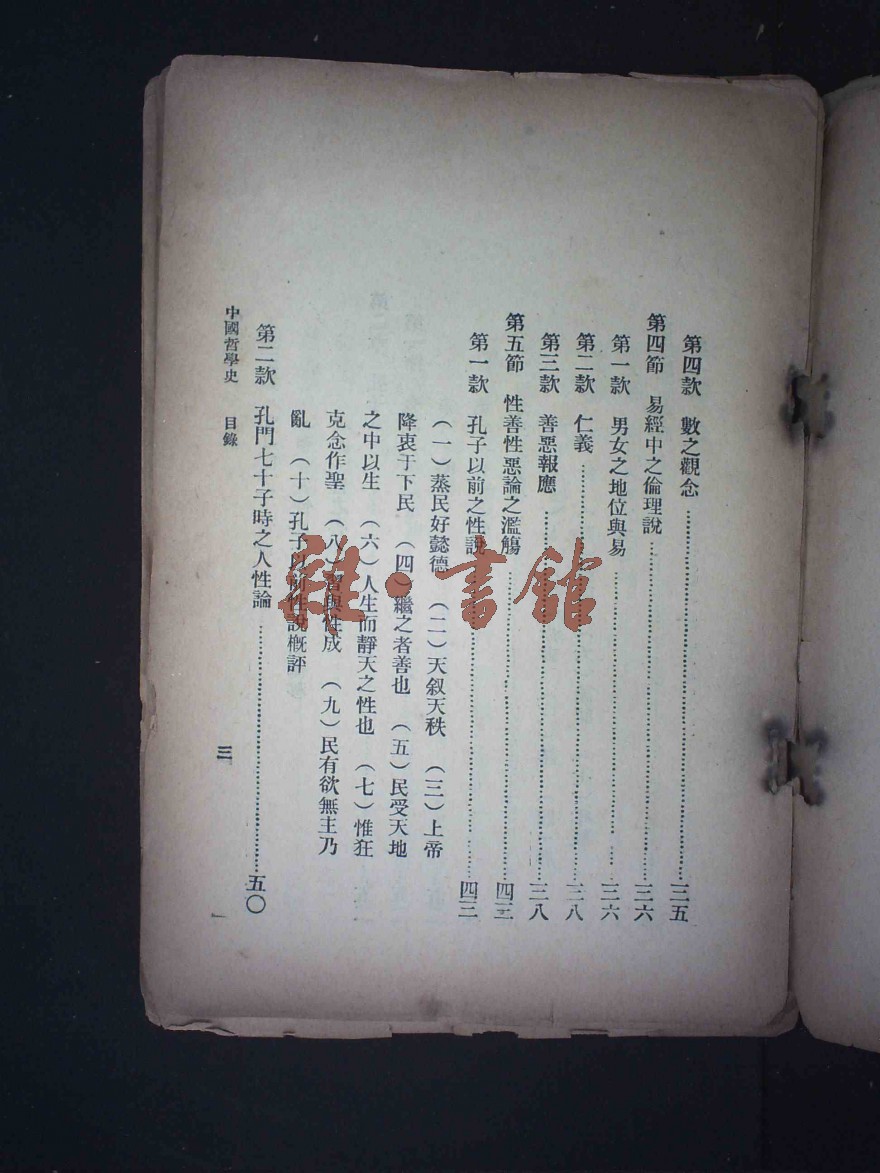 第四款　數之觀念…………三五
第四節　易經中之倫理說…………三六
第一款　男女之地位與易…………三六
第二款　仁義…………三八
第三款　善惡報應…………三八
第五節　性善性惡論之濫觴…………四三
第一款　孔子以前之性說…………四三
（一）蒸民好懿德　（二）天叙天秩　（三）上帝
降衷于下民　（四）繼之者善也　（五）民受天地
之中以生　（六）人生而靜天之性也　（七）惟狂
克念作聖　（八）習與性成　（九）民有欲無主乃
亂　（十）孔子以前性說概評
第二款　孔門七十子時之人性論…………五〇
中國哲學史　目錄　三
雜·書館